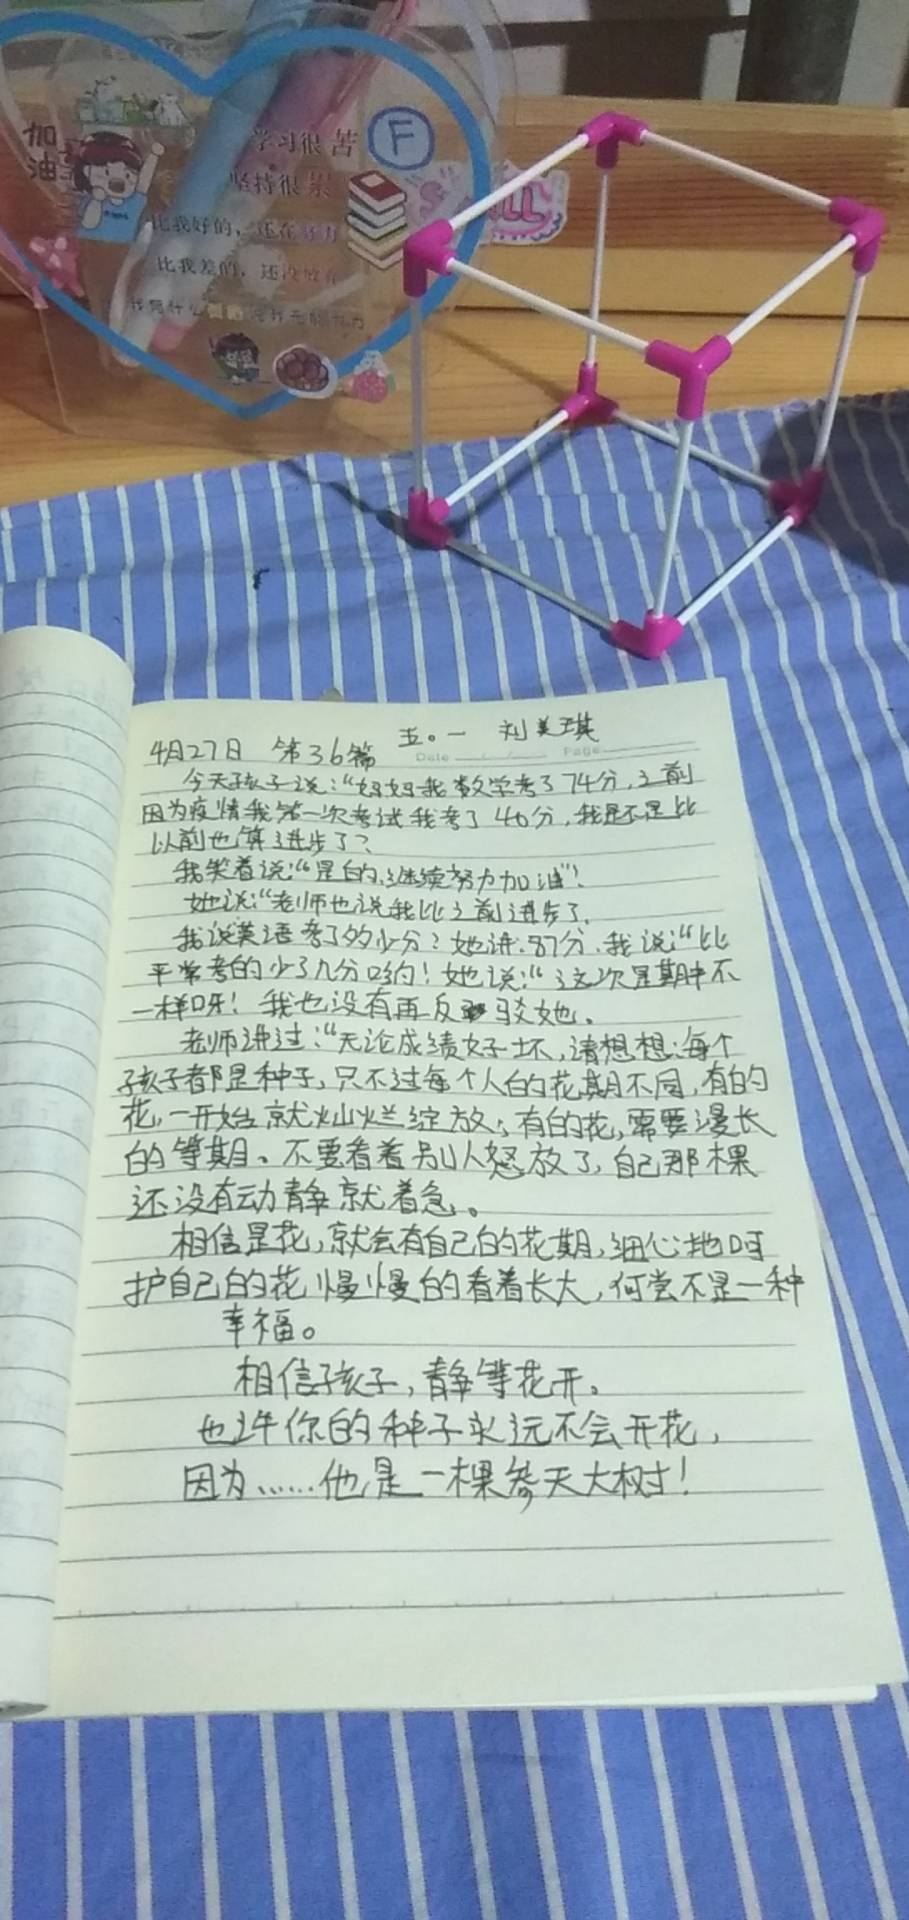 加油
学习很苦
F
坚持很累
比我好的，还在努力
比我差的，还没放弃
五。一 刘美琪
4月27日 第36篇
Date Page
今天孩子说："妈妈我数学考了74分，之前
因为疫情我第一次考试我考了40分，我是不是比
以前也算进步了？
我笑着说："是的，继续努力加油"！
她说："老师也说我比之前进步了.
我说英语考了多少分？她讲.87分.我说："比
平常考的少了几分哟！她说："这次是期中不
一样呀！我也没有再反驳她。
老师讲过："无论成绩好坏，请想想：每个
孩子都是种子，只不过每个人的花期不同，有的
花，一开始就灿烂绽放；有的花，需要漫长
的等期。不要看着别人怒放了，自己那棵
还没有动静就着急。
相信是花，就会有自己的花期，细心地呵
护自己的花慢慢的看着长大，何尝不是一种
幸福。
相信孩子，静等花开。
也许你的种子永远不会开花，
因为……他是一棵参天大树！